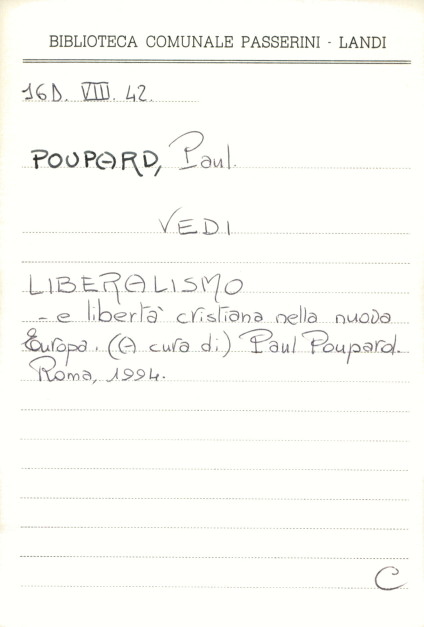 BIBLIOTECA COMUNALE PASSERINI - LANDI
16D. VIII. 42.
POUPARD, Paul.
VEDI
LIBERALISMO
- e libertà cristiana nella nuova
Europa. (A cura di) Paul Poupard.
Roma, 1994.
C